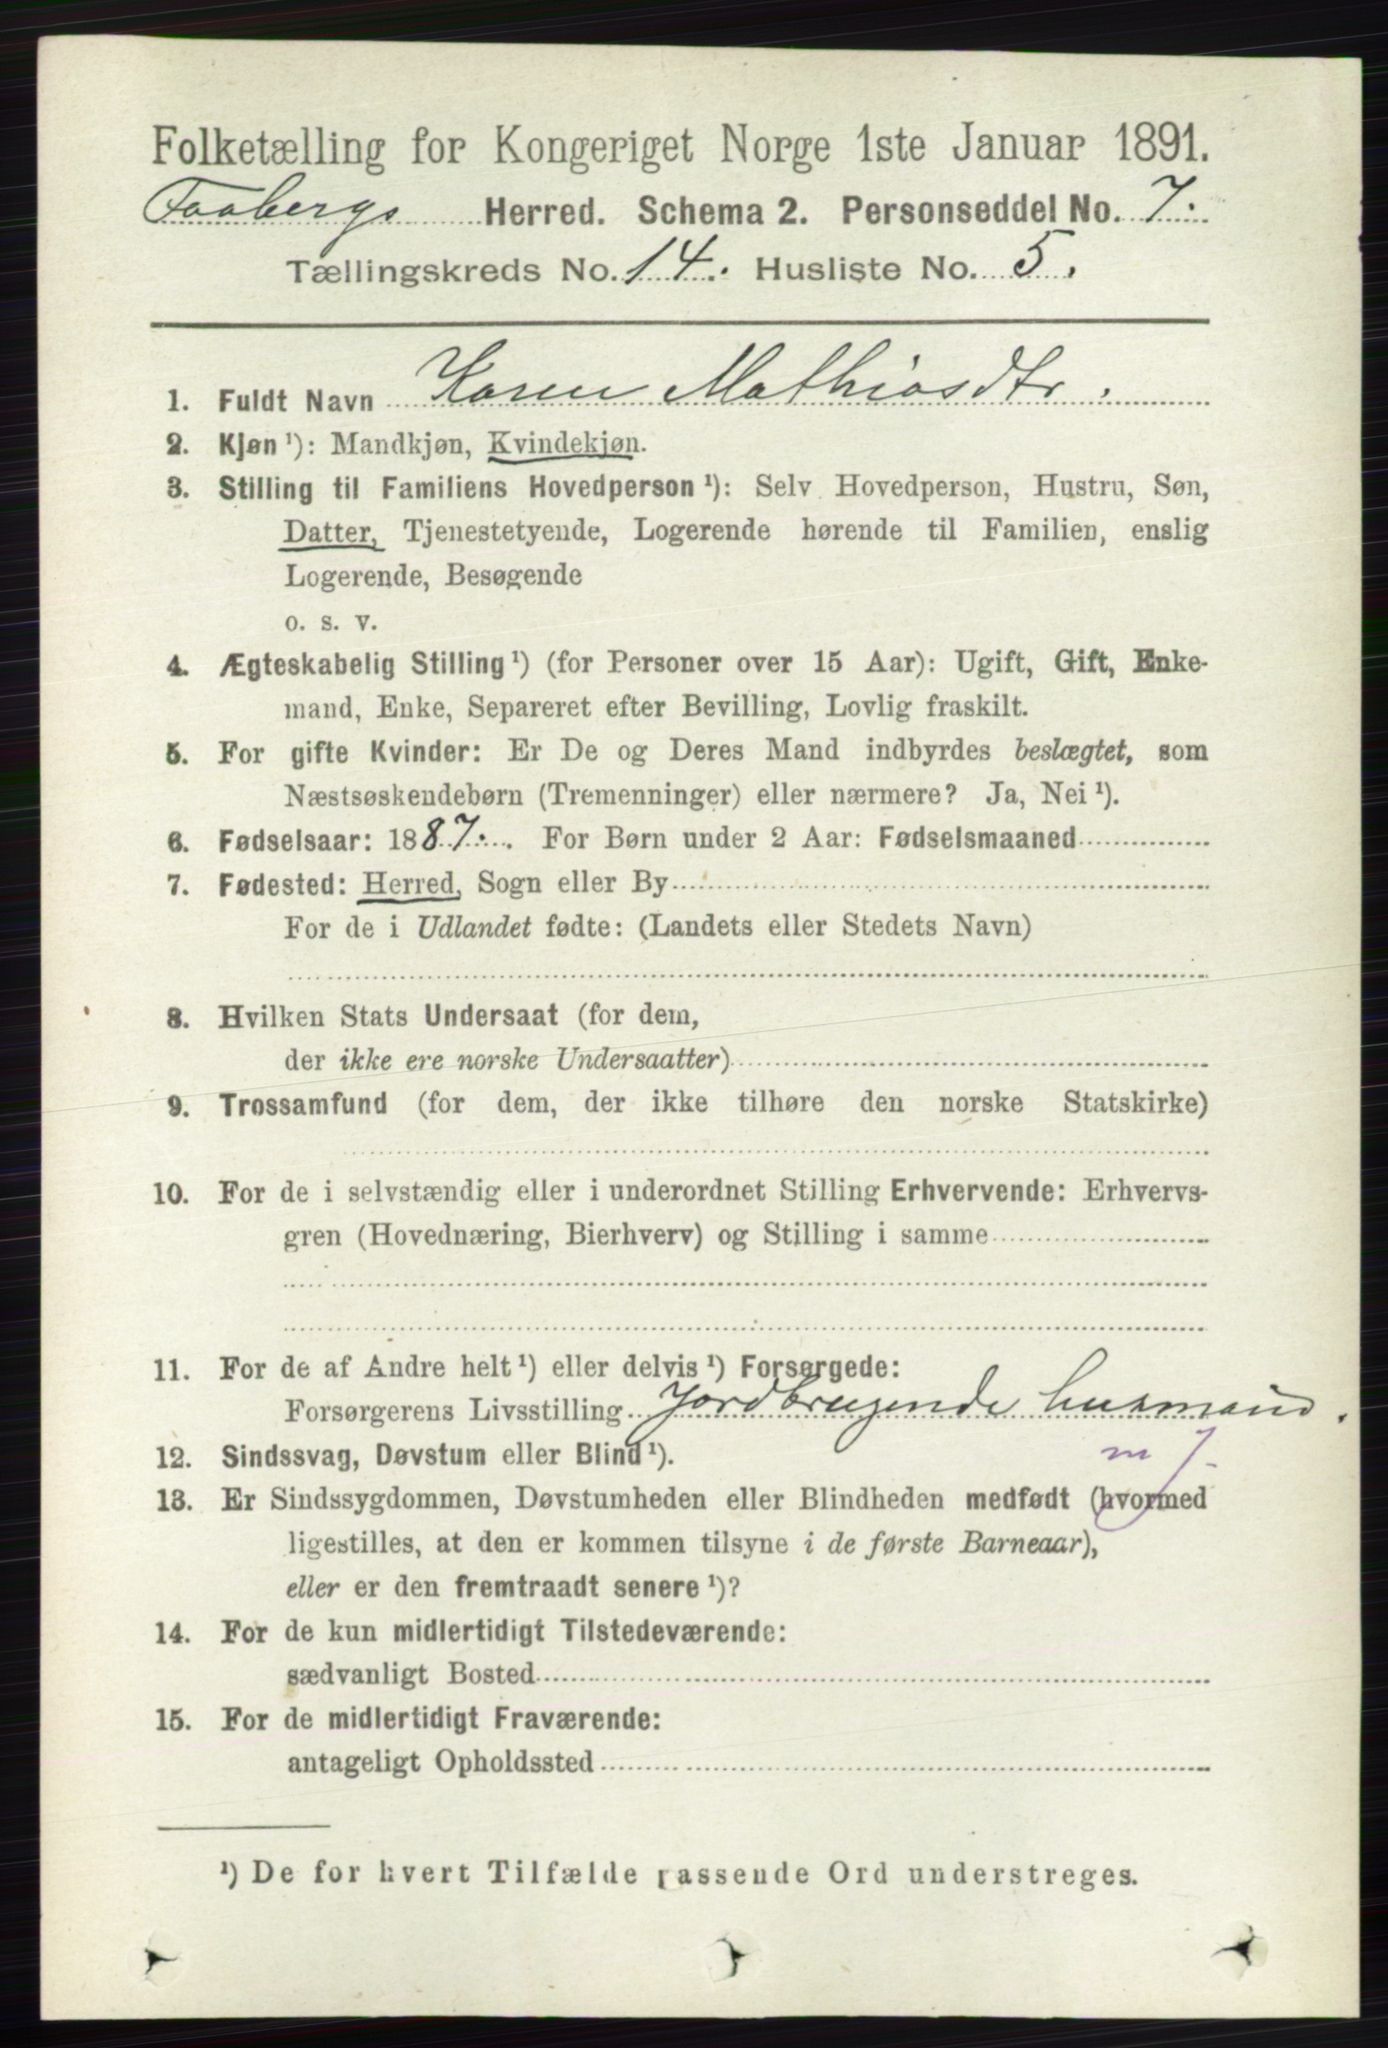 Folketælling for Kongeriget Norge 1ste Januar 1891.
Faabergs Herred. Schema 2. Personseddel No. 7.
Tællingskreds No. 14. Husliste No. 5.
1. Fuldt Navn Karen Mathiasdtr.
2. Kjøn ¹): Mandkjøn, Kvindekjøn.
3. Stilling til Familiens Hovedperson ¹): Selv Hovedperson, Hustru, Søn,
Datter, Tjenestetyende, Logerende hørende til Familien, enslig
Logerende, Besøgende
o. s. v.
4. Ægteskabelig Stilling ¹) (for Personer over 15 Aar): Ugift, Gift, Enke-
mand, Enke, Separeret efter Bevilling, Lovlig fraskilt.
5. For gifte Kvinder: Er De og Deres Mand indbyrdes beslægtet, som
Næstsøskendebørn (Tremenninger) eller nærmere? Ja, Nei ¹).
6. Fødselsaar: 1887. For Børn under 2 Aar: Fødselsmaaned
7. Fødested: Herred, Sogn eller By
For de i Udlandet fødte: (Landets eller Stedets Navn)
8. Hvilken Stats Undersaat (for dem,
der ikke ere norske Undersaatter)
9. Trossamfund (for dem, der ikke tilhøre den norske Statskirke)
10. For de i selvstændig eller i underordnet Stilling Erhvervende: Erhvervs-
gren (Hovednæring, Bierhverv) og Stilling i samme
11. For de af Andre helt ¹) eller delvis ¹) Forsørgede:
Forsørgerens Livsstilling Jordbrugende husmand.
12. Sindssvag, Døvstum eller Blind ¹).
m J.
13. Er Sindssygdommen, Døvstumheden eller Blindheden medfødt (hvormed
ligestilles, at den er kommen tilsyne i de første Barneaar),
eller er den fremtraadt senere ¹)?
14. For de kun midlertidigt Tilstedeværende:
sædvanligt Bosted
15. For de midlertidigt Fraværende:
antageligt Opholdssted
¹) De for hvert Tilfælde passende Ord understreges.